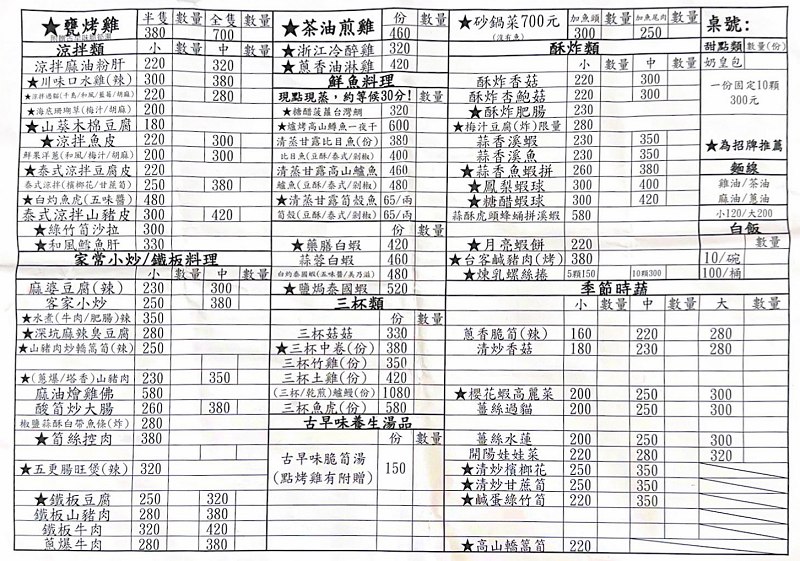 ★甕烤雞 半隻 數量 全隻 數量
380 700
涼拌類 小 數量 中 數量
涼拌麻油粉肝 220 320
★川味口水雞(辣) 300 380
★涼拌過貓(千島/和風/藍莓/胡麻) 220 280
★海底珊瑚草(梅汁/胡麻) 200
★山葵木棉豆腐 180
★涼拌魚皮 220 300
鮮果洋蔥(和風/梅汁/胡麻) 200 300
★泰式涼拌豆腐皮 220
泰式涼拌(檳榔花/甘蔗筍) 250 380
★白灼魚虎(五味醬) 480
泰式涼拌山豬皮 300 420
★綠竹筍沙拉 300
★和風鱈魚肝 330
家常小炒/鐵板料理
小 數量 中 數量
麻婆豆腐(辣) 230 300
客家小炒 250 380
★水煮(牛肉/肥腸)辣 350
★深坑麻辣臭豆腐 280
★山豬肉炒轎篙筍(辣) 250
★(蔥爆/塔香)山豬肉 230 350
麻油燴雞佛 580
酸筍炒大腸 260 380
椒鹽蒜酥白帶魚條(炸) 280
★筍絲控肉 380
★五更腸旺煲(辣) 320
★鐵板豆腐 250 320
鐵板山豬肉 280 380
鐵板牛肉 320 420
蔥爆牛肉 280 380
★茶油煎雞 份 數量
460
★浙江冷醉雞 320
★蔥香油淋雞 420
鮮魚料理
現點現蒸，約等候30分! 數量
★糖醋菠蘿台灣鯛 320
★爐烤高山鱒魚一夜干 600
清蒸甘露比目魚(份) 380
比目魚(豆酥/泰式/剁椒) 400
清蒸甘露高山鱸魚 460
鱸魚(豆酥/泰式/剁椒) 480
★清蒸甘露筍殼魚 65/兩
筍殼(豆酥/泰式/剁椒) 65/兩
份 數量
★藥膳白蝦 420
蒜蓉白蝦 460
白灼泰國蝦(五味醬/美乃滋) 480
★鹽焗泰國蝦 520
三杯類
份 數量
三杯菇菇 330
★三杯中卷(份) 380
三杯竹雞(份) 350
三杯土雞(份) 420
(三杯/乾煎)鱸鰻(份) 1080
三杯魚虎(份) 580
古早味養生湯品
份 數量
古早味脆筍湯
(點烤雞有附贈) 150
★砂鍋菜700元 加魚頭 數量 加魚尾肉 數量
(沒有魚) 300 250
酥炸類
小 數量 中 數量
酥炸香菇 220 300
酥炸杏鮑菇 220 300
★酥炸肥腸 230
★梅汁豆腐(炸)限量 280
蒜香溪蝦 230 350
蒜香溪魚 230 350
★蒜香魚蝦拼 260 380
★鳳梨蝦球 300 400
★糖醋蝦球 300 420
蒜酥虎頭蜂蛹拼溪蝦 580
★月亮蝦餅 220
★台客鹹豬肉(烤) 380
★煉乳螺絲捲 5顆150 10顆300
季節時蔬
小 數量 中 數量 大 數量
蔥香脆筍(辣) 160 220 280
清炒香菇 180 230 280
★櫻花蝦高麗菜 200 250 300
薑絲過貓 200 250 300
薑絲水蓮 200 250 300
開陽娃娃菜 220 280 320
★清炒檳榔花 250 350
★清炒甘蔗筍 250 350
★鹹蛋綠竹筍 220 350
★高山轎篙筍 220
桌號:
甜點類 數量(份)
奶皇包
一份固定10顆
300元
★為招牌推薦
麵線
雞油/茶油
麻油/蔥油
小120/大200
白飯
數量
10/碗
100/桶